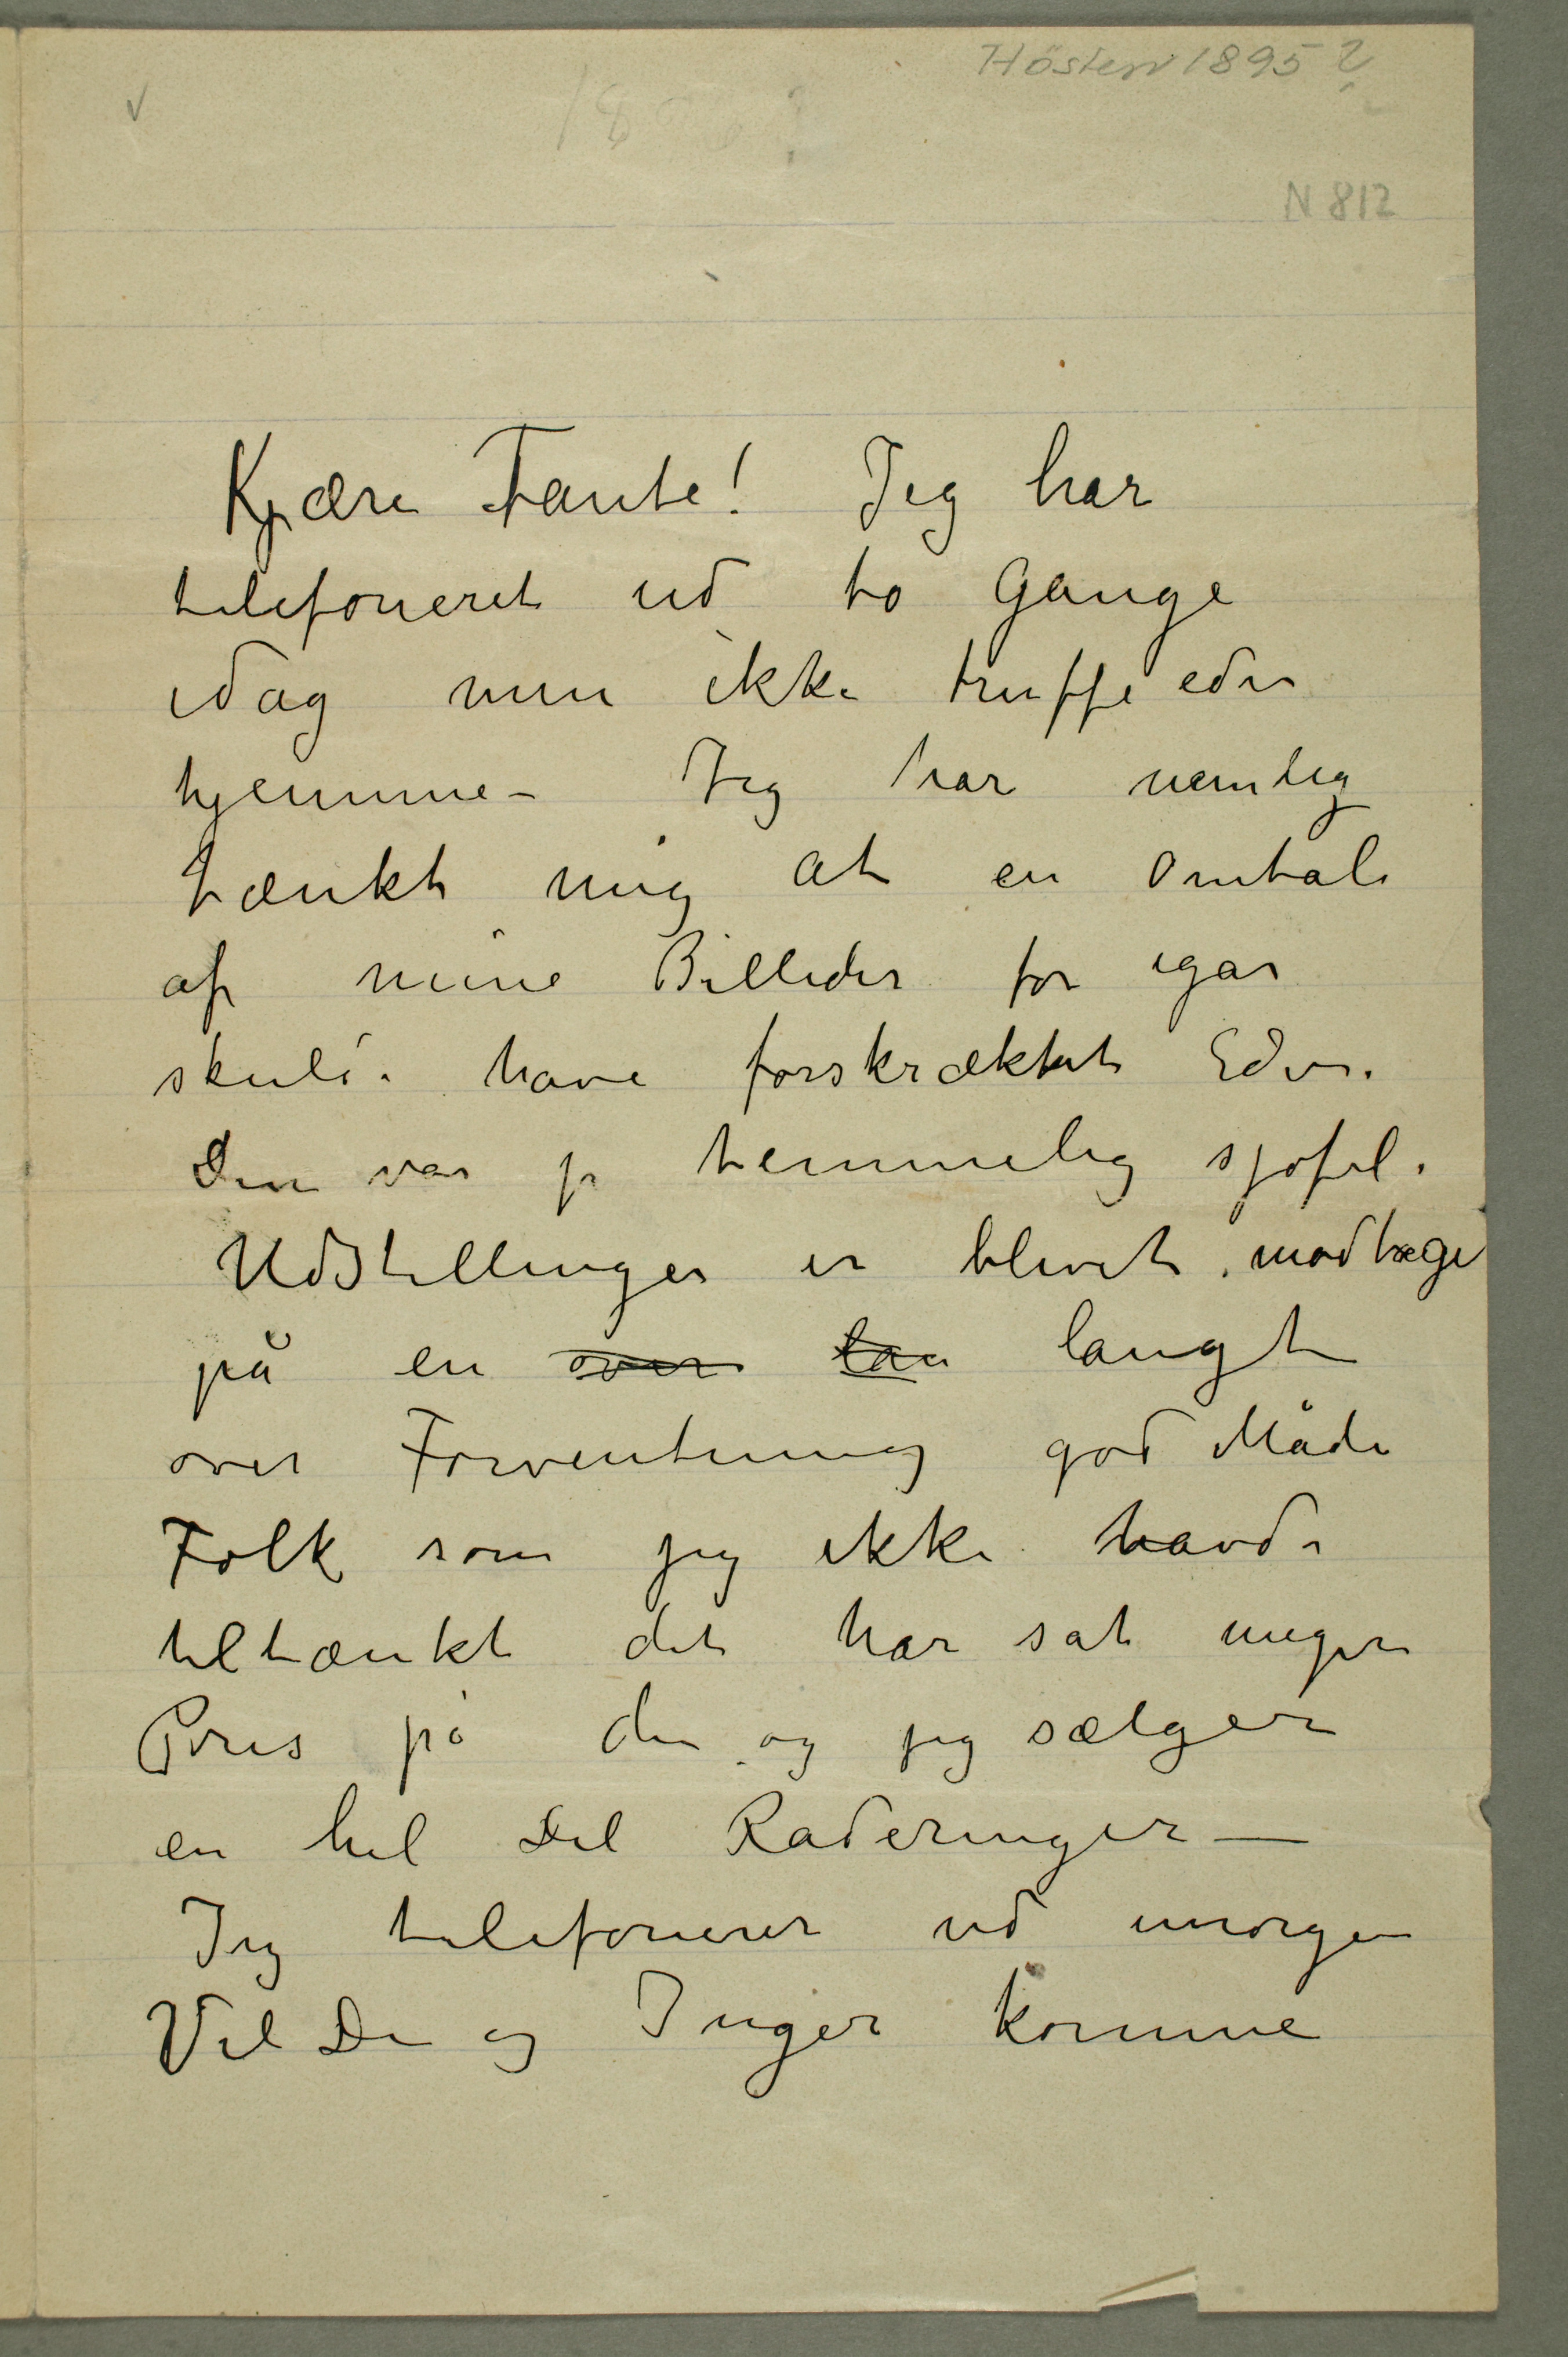 Hösten 1895 ?
N 812
Kjære Tante! Jeg har
telefoneret ud to Gange
idag men ikke truffe eder
hjemme – Jeg har nemlig
tænkt mig at en Omtale
af mine Billeder for igår
skulde have forskrækket Eder.
Den var jo temmelig sjofel.
Udstillingen er blevet modtaget
på en over lan langt
over Forventning god Måde
Folk som jeg ikke havde
tiltænkt det har sat megen
Pris på den og jeg sælger
en hel Del Raderinger —
Jeg telefonerer ud imorgen
Vil De og Inger komme